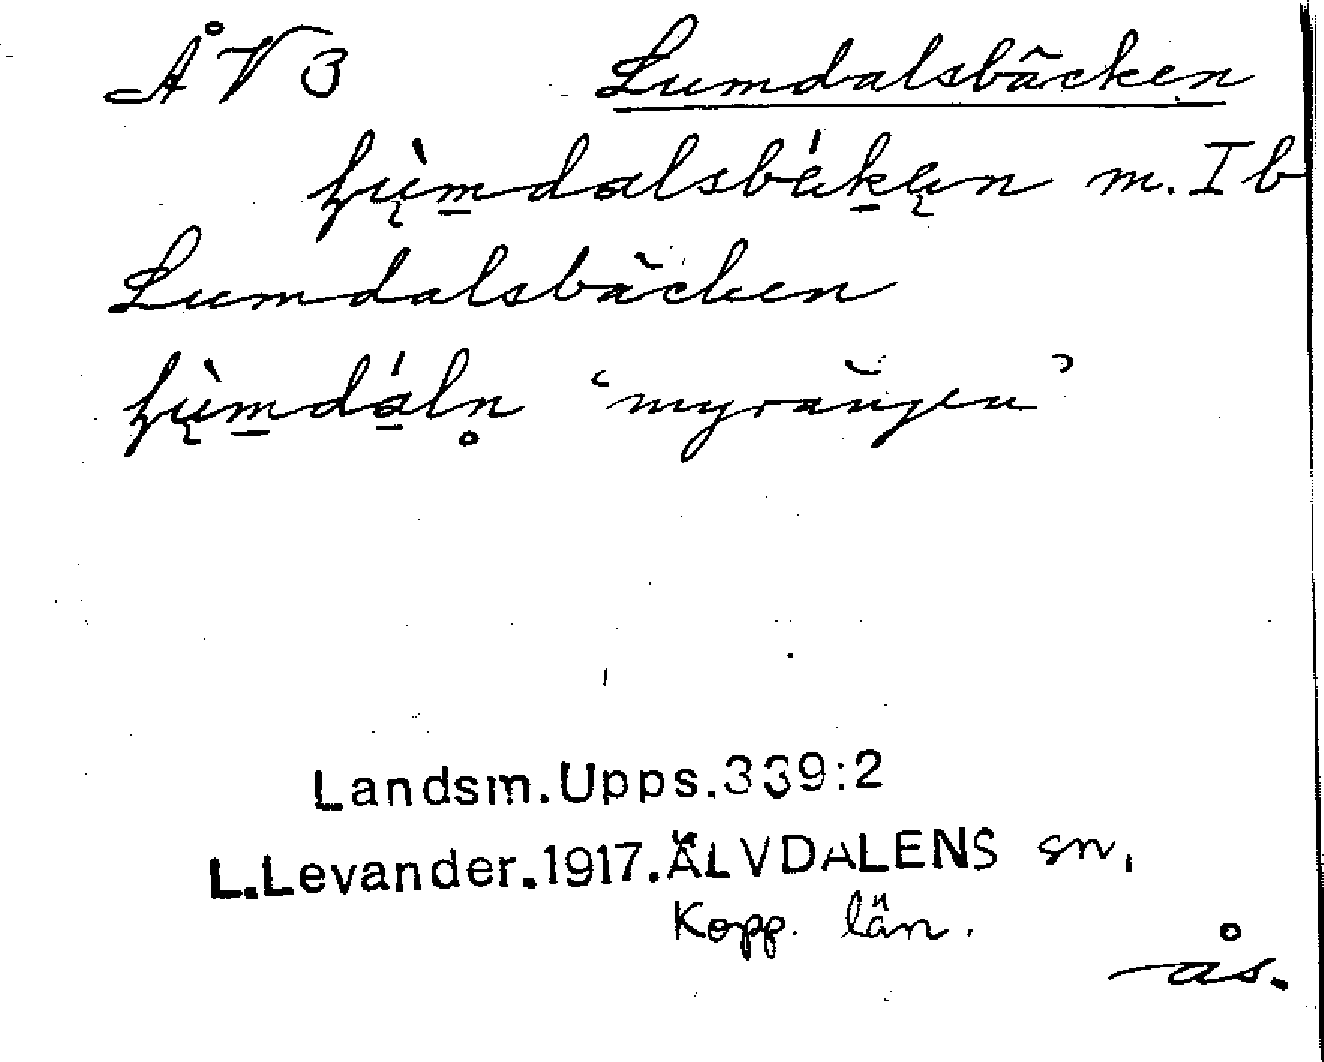 ÅV3 Lumdalsbäcken
lumdalsbäkən m. I b
Lumdalsbäcken
lumdaln ‘myrängen’
Landsm.Upps.339:2
L.Levander.1917.ÄLVDALENS sn.
Kopp. län.
ås.